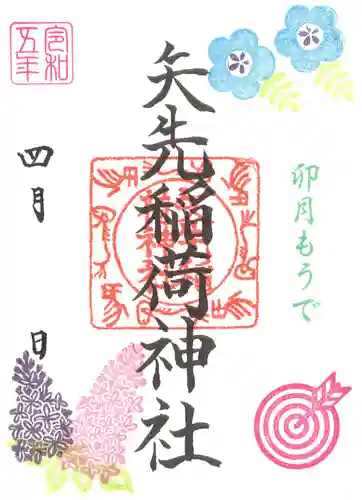 卯月もうで
矢先稲荷神社
令和
五年
四月
日